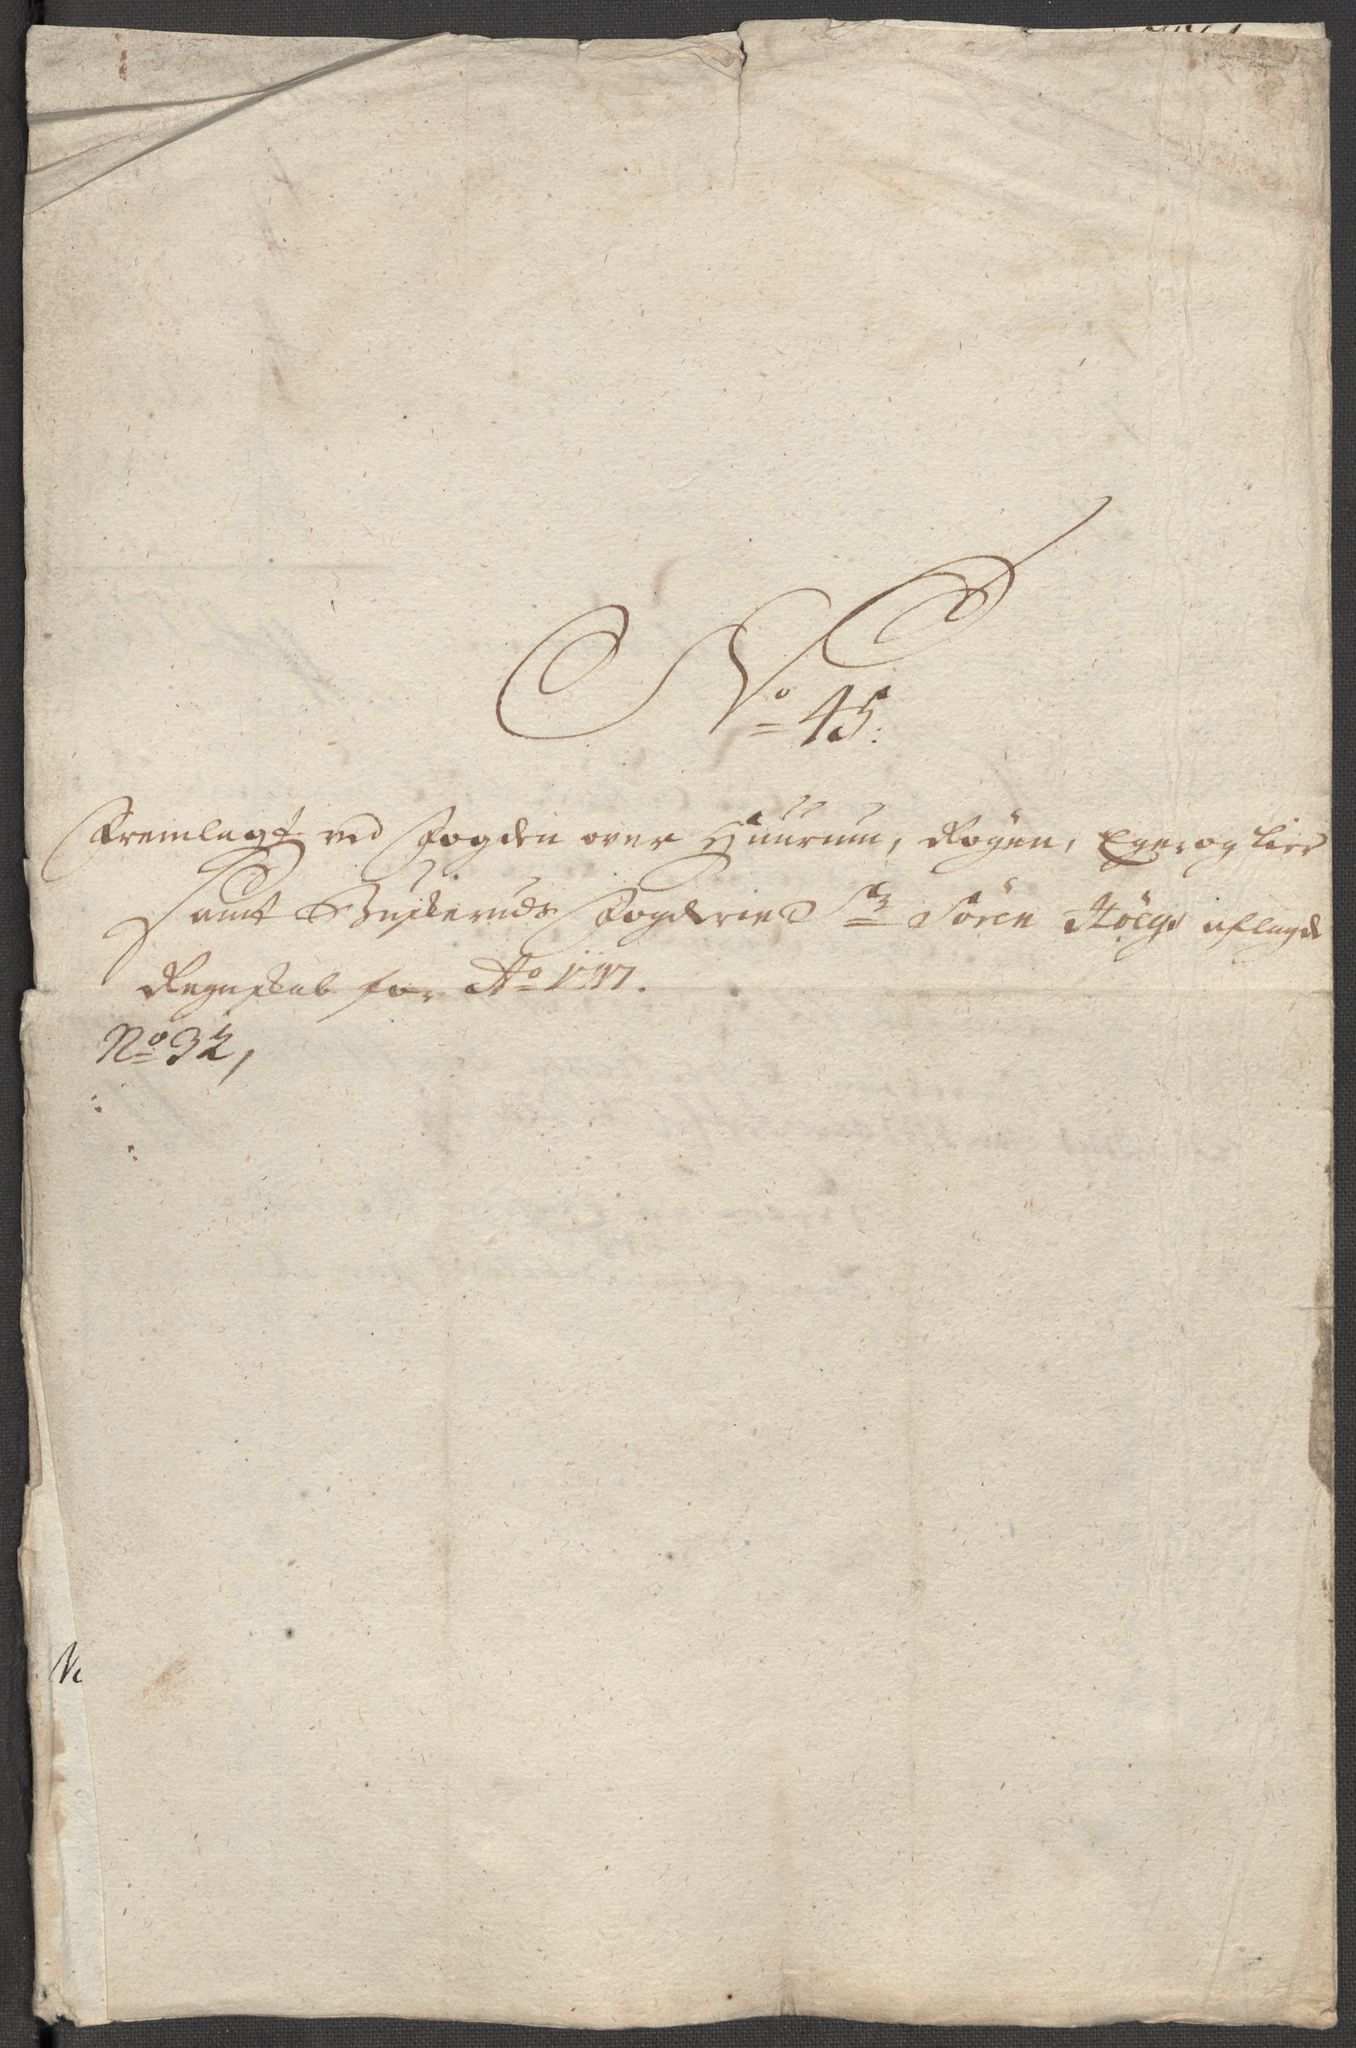 No 45:
Fremlagt ved Fogden over Huurum, Røgen, Eger og Lier
samt Buskeruds Fogderie Sr Søren Høegs aflagde
Regnskab for Ao 1717.
No 32,